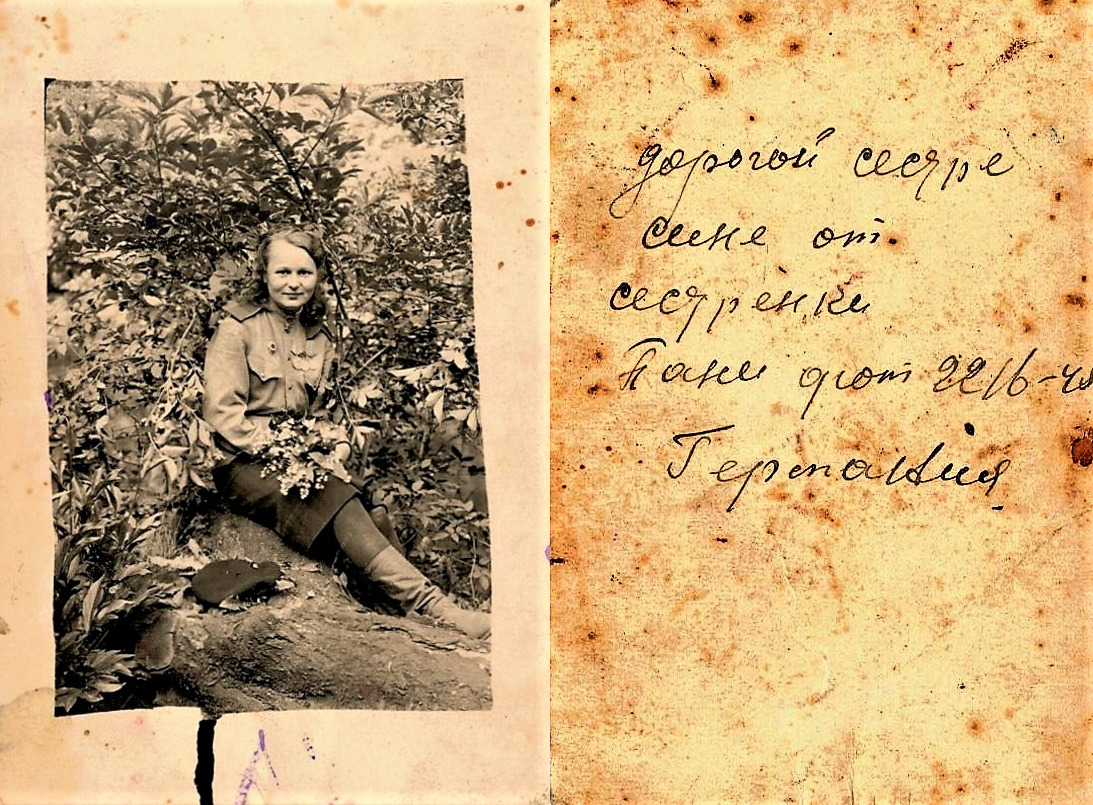 дорогой сестре
сине от
сестрёнки
Тани фот 22/6-45
Германия